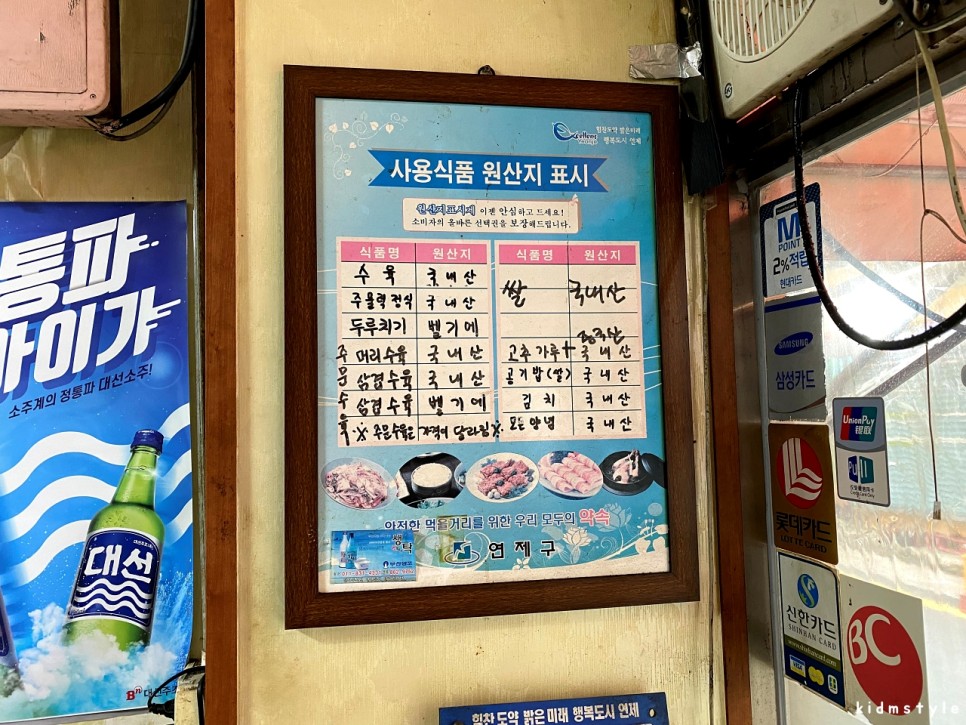 통파
아이가
소주계의 정통파 대선소주!
대선
힘찬도약 밝은미래
행복도시 연제
사용식품 원산지 표시
원산지표시제 이젠 안심하고 드세요!
소비자의 올바른 선택권을 보장해드립니다.
식품명 원산지
수육 국내산
주물럭정식 국내산
두루치기 벨기에
머리수육 국내산
삼겹수육 국내산
삼겹수육 벨기에
수문수육
※ 주문수육은 가격에 달라짐 ※
식품명 원산지
쌀 국내산
중국산
고추가루 + 국내산
공기밥(쌀) 국내산
김치 국내산
모든양념 국내산
안전한 먹을거리를 위한 우리 모두의 약속
생탁
연제구
힘찬 도약 밝은 미래 행복도시 연제
M
POINT
2%적립
현대카드
SAMSUNG
삼성카드
UnionPay
银联
롯데카드
LOTTE CARD
신한카드
SHINHAN CARD
BC
kidmstyle